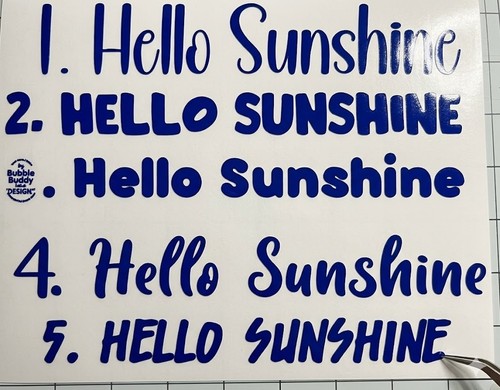 1. Hello Sunshine
2. HELLO SUNSHINE
by
Bubble
Buddy
"DESIGN"
. Hello Sunshine
4. Hello Sunshine
5. HELLO SUNSHINE